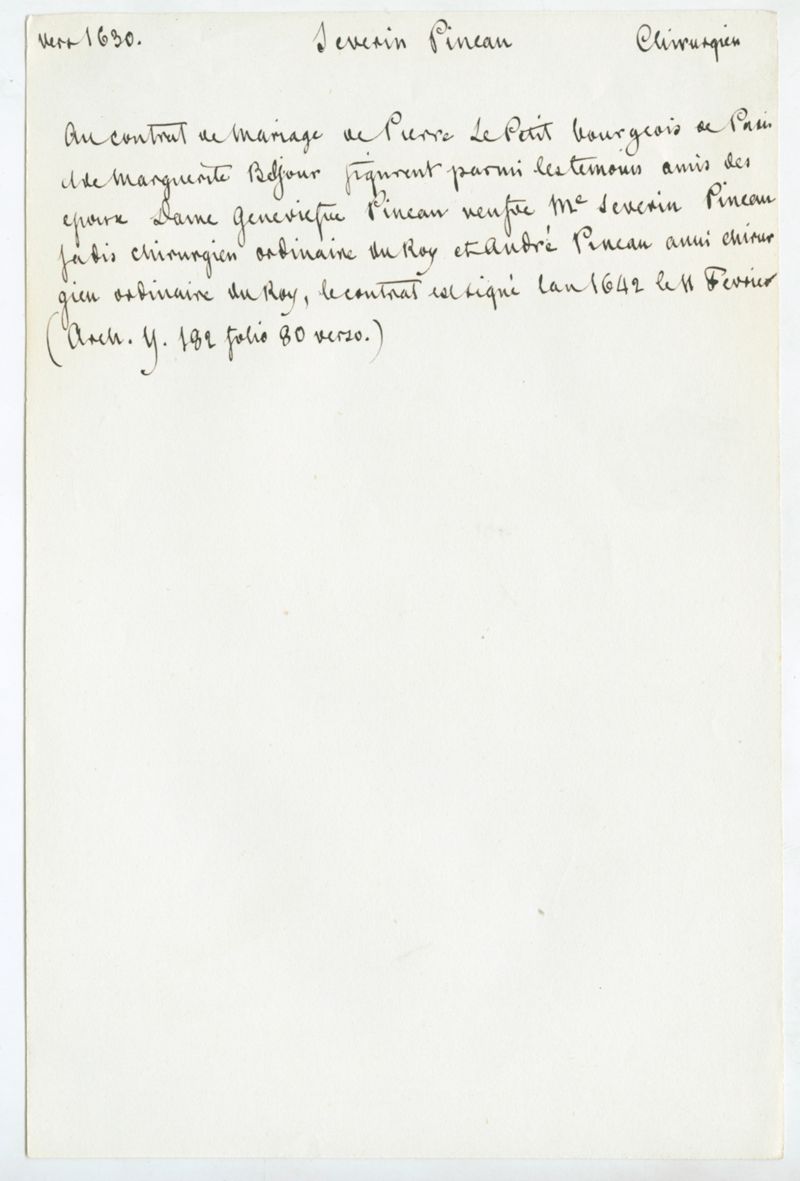 vers 1630. Severin Pineau Chirurgien
Au contrat de Mariage de Pierre Le Petit bourgeois de Paris
et de Marguerite figurent parmi les temoins amis des
epoux Dame Geneviefve Pineau veufve Me Severin Pineau
jadis chirurgien ordinaire du Roy et André Pineau aussi chirur
gien ordinaire du Roy, le contrat est signé lan 1642 le 11 Fevrier
(Arch. Y. 182 folio 80 verso.)